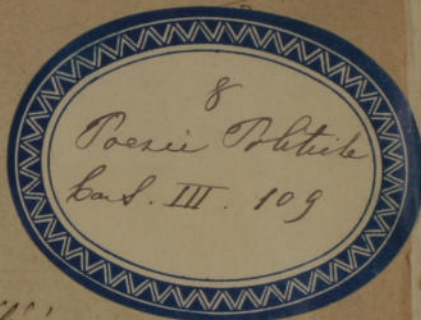 8
Poesie Politiche
Cas. III. 109